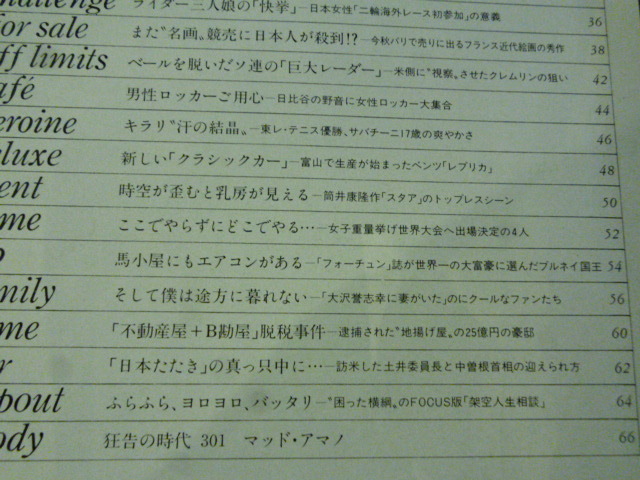 challenge ライダー三人娘の「快挙」―日本女性「二輪海外レース初参加」の意義 36
for sale また〝名画〟競売に日本人が殺到!?―今秋パリで売りに出るフランス近代絵画の秀作 38
ff limits ベールを脱いだソ連の「巨大レーダー」―米側に〝視察〟させたクレムリンの狙い 42
afé 男性ロッカーご用心―日比谷の野音に女性ロッカー大集合 44
eroine キラリ〝汗の結晶〟―東レ・テニス優勝、サバチーニ17歳の爽やかさ 46
eluxe 新しい「クラシックカー」―富山で生産が始まったベンツ「レプリカ」 48
ent 時空が歪むと乳房が見える―筒井康隆作「スタア」のトップレスシーン 50
me ここでやらずにどこでやる…―女子重量挙げ世界大会へ出場決定の4人 52
馬小屋にもエアコンがある―「フォーチュン」誌が世界一の大富豪に選んだブルネイ国王 54
mily そして僕は途方に暮れない―「大沢誉志幸に妻がいた」のにクールなファンたち 56
me 「不動産屋+B勘屋」脱税事件―逮捕された〝地揚げ屋〟の25億円の豪邸 60
r 「日本たたき」の真っ只中に…―訪米した土井委員長と中曽根首相の迎えられ方 62
bout ふらふら、ヨロヨロ、バッタリ―〝困った横綱〟のFOCUS版「架空人生相談」 64
ody 狂告の時代 301 マッド・アマノ 66